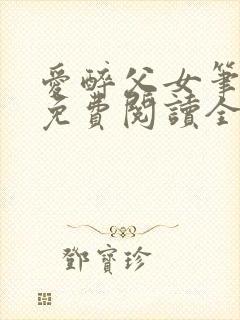 愛醉父女筆
免費閱讀全
鄧寶珍